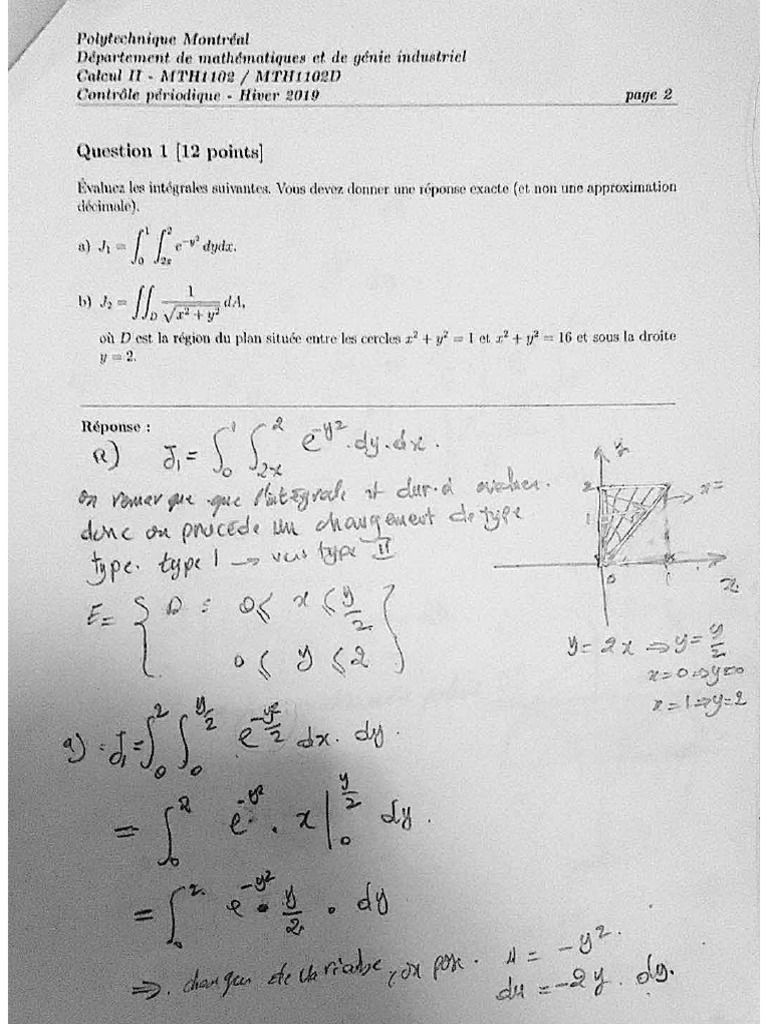 Polytechnique Montréal
Département de mathématiques et de génie industriel
Calcul II - MTH1102 / MTH1102D
Contrôle périodique - Hiver 2019 page 2
Question 1 [12 points]
Évaluez les intégrales suivantes. Vous devez donner une réponse exacte (et non une approximation
décimale).
a) J₁ = ∫₀¹ ∫₂ₓ² e^{-y²} dydx.
b) J₂ = ∬_D 1/√(x² + y²) dA,
où D est la région du plan située entre les cercles x² + y² = 1 et x² + y² = 16 et sous la droite
y = 2.
Réponse :
a) J₁ = ∫₀¹ ∫₂ₓ² e^{-y²}.dy.dx.
on remarque que l'intégrale est dur à evaluer.
donc on procède un changement de type
type. type I → vers type II
E = { D : 0 ≤ x ≤ y/2
0 ≤ y ≤ 2 }
y
2
1
x=
0
1
x
y = 2x ⇒ y = y/2
x = 0 ⇒ y = 0
x = 1 ⇒ y = 2
a) J₁ = ∫₀² ∫₀^{y/2} e^{-y²/2} dx. dy.
= ∫₀² e^{-y²} . x |₀^{y/2} dy.
= ∫₀² e^{-y²} . y/2 . dy
⇒ changer de variable, on pose. u = -y².
du = -2y. dy.